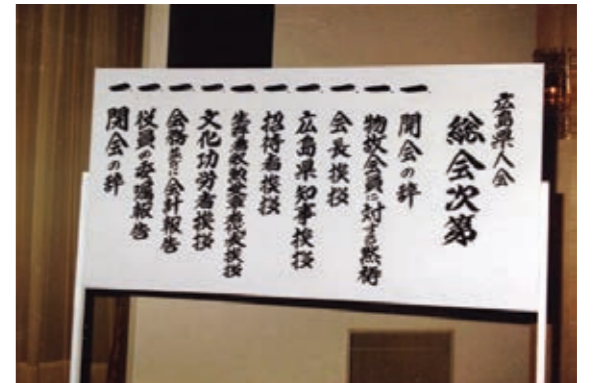 広島県人会
総会次第
一、開会の辞
一、物故会員に対する黙祷
一、会長挨拶
一、広島県知事挨拶
一、招待者挨拶
一、
一、文化功労者挨拶
一、会務並びに会計報告
一、役員の委嘱報告
一、閉会の辞